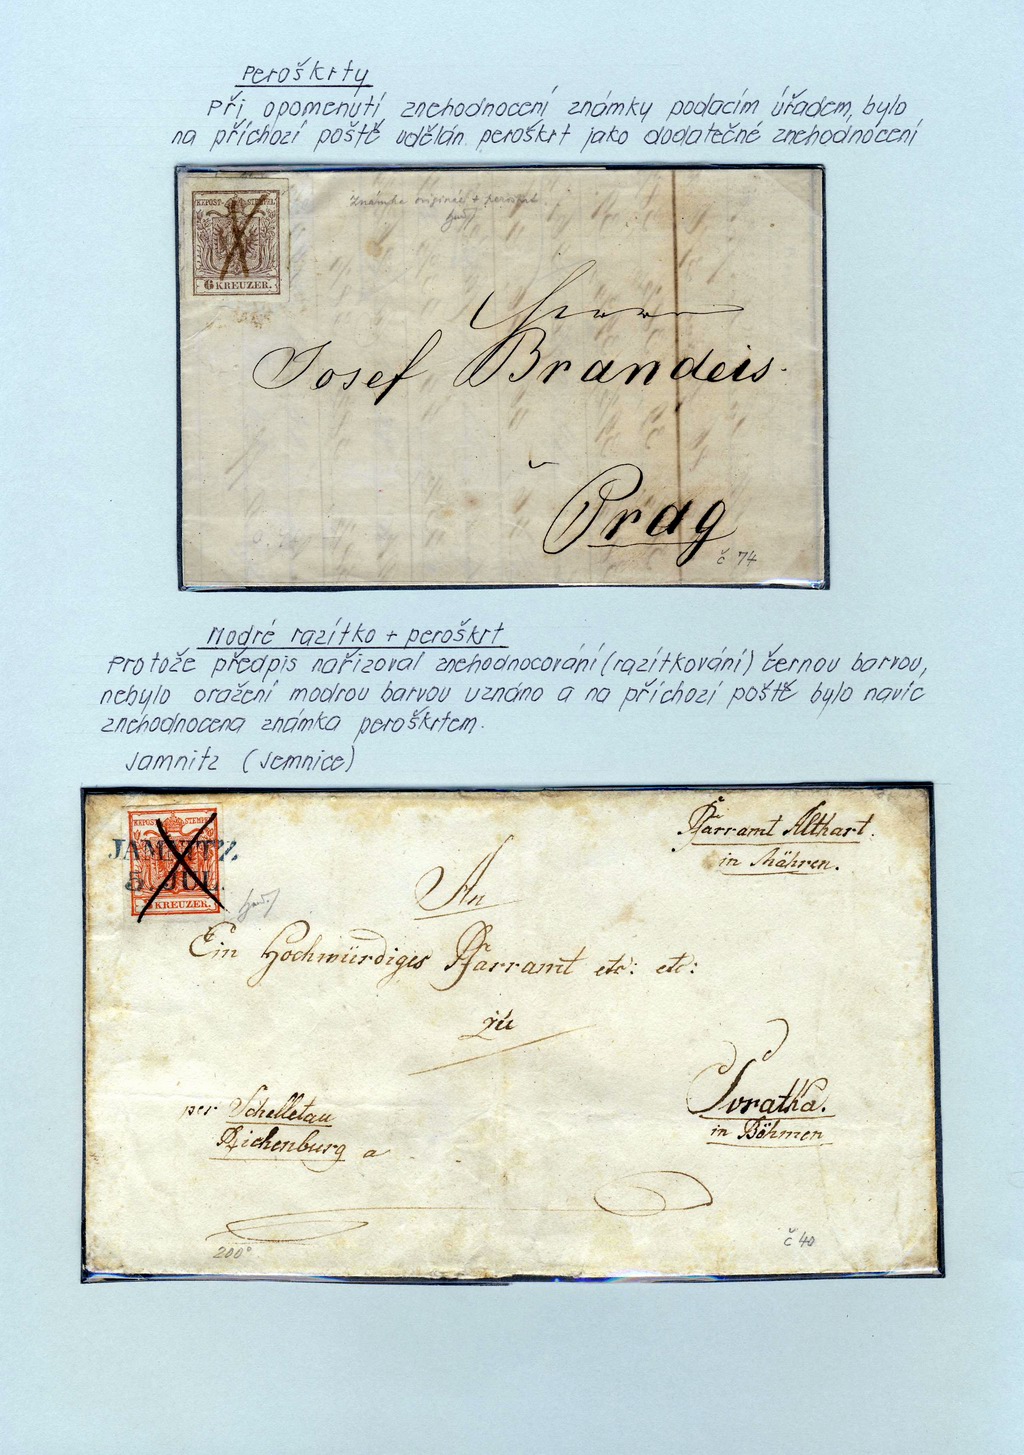 Peroškrty
Při opomenutí znehodnocení známky podacím úřadem, bylo
na příchozí poště udělán peroškrt jako dodatečné znehodnocení
KKPOST-STEMPEL
6 KREUZER.
Známka originál + peroškrt
Herrn
Josef Brandeis.
Prag
č 74
Modré razítko + peroškrt
Protože předpis nařizoval znehodnocování (razítkování) černou barvou,
nebylo oražení modrou barvou uznáno a na příchozí poště bylo navíc
znehodnocena známka peroškrtem.
Jamnitz (Jemnice)
KKPOST-STEMPEL
JAMNITZ.
5. JUL.
KREUZER.
Pfarramt Althart.
in Mähren.
An
Ein Hochwürdiges Pfarramt etc: etc:
zu
per Schelletau
Richenburg a
Svratka.
in Böhmen
200°
č 40